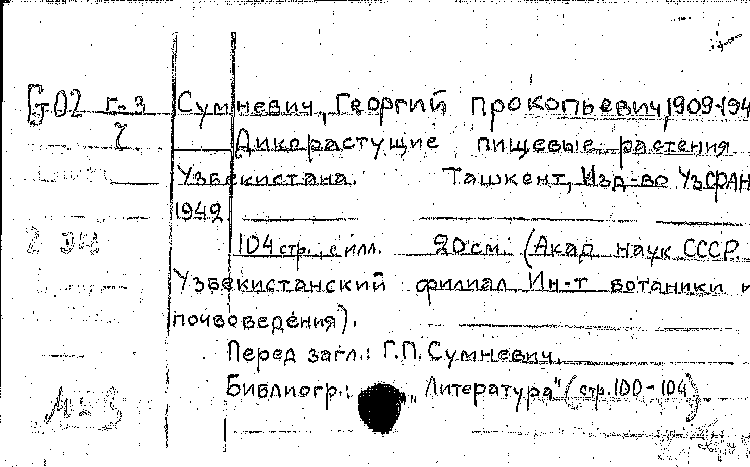 G02 г-3 Сумневич, Георгий Прокопьевич, 1909-194
Дикорастущие пищевые растения
Узбекистана. Ташкент, Изд-во УзФАН
1942
104 стр., с илл. 20 см. (Акад. наук СССР.
2 эк
Узбекистанский филиал Ин-т ботаники и
почвоведения).
Перед загл.: Г.П. Сумневич.
Библиогр.: „Литература" (стр. 100-104)